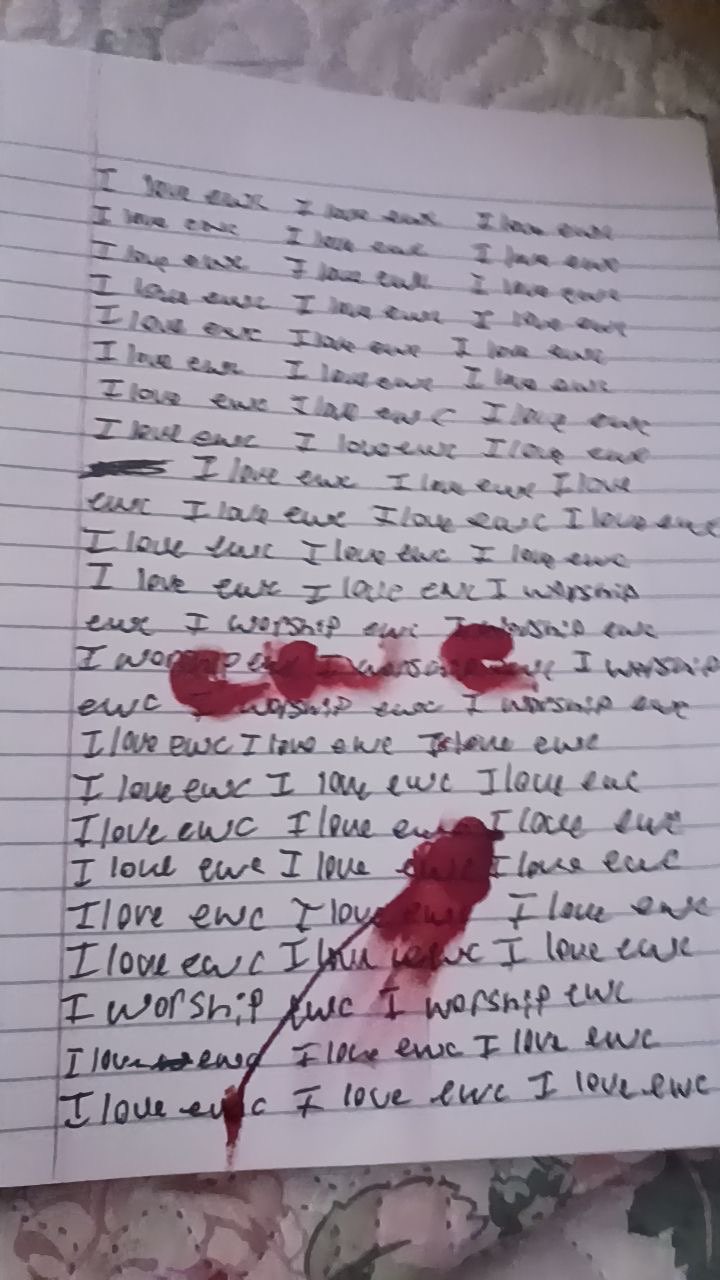 I love ewc I love ewc I love ewc
I love ewc I love ewc I love ewc
I love ewc I love ewc I love ewc
I love ewc I love ewc I love ewc
I love ewc I love ewc I love ewc
I love ewc I love ewc I love ewc
I love ewc I love ewc I love ewc
I love ewc I love ewc I love ewc
I love ewc I love ewc I love
ewc I love ewc I love ewc I love ewc
I love ewc I love ewc I love ewc
I love ewc I love ewc I worship
ewc I worship ewc I worship ewc
I worship ewc I worship ewc I worship
ewc I worship ewc I worship ewc
I love ewc I love ewc I love ewc
I love ewc I love ewc I love ewc
I love ewc I love ewc I love ewc
I love ewc I love ewc I love ewc
I love ewc I love ewc I love ewc
I love ewc I love ewc I love ewc
I worship ewc I worship ewc
I love ewc I love ewc I love ewc
I love ewc I love ewc I love ewc